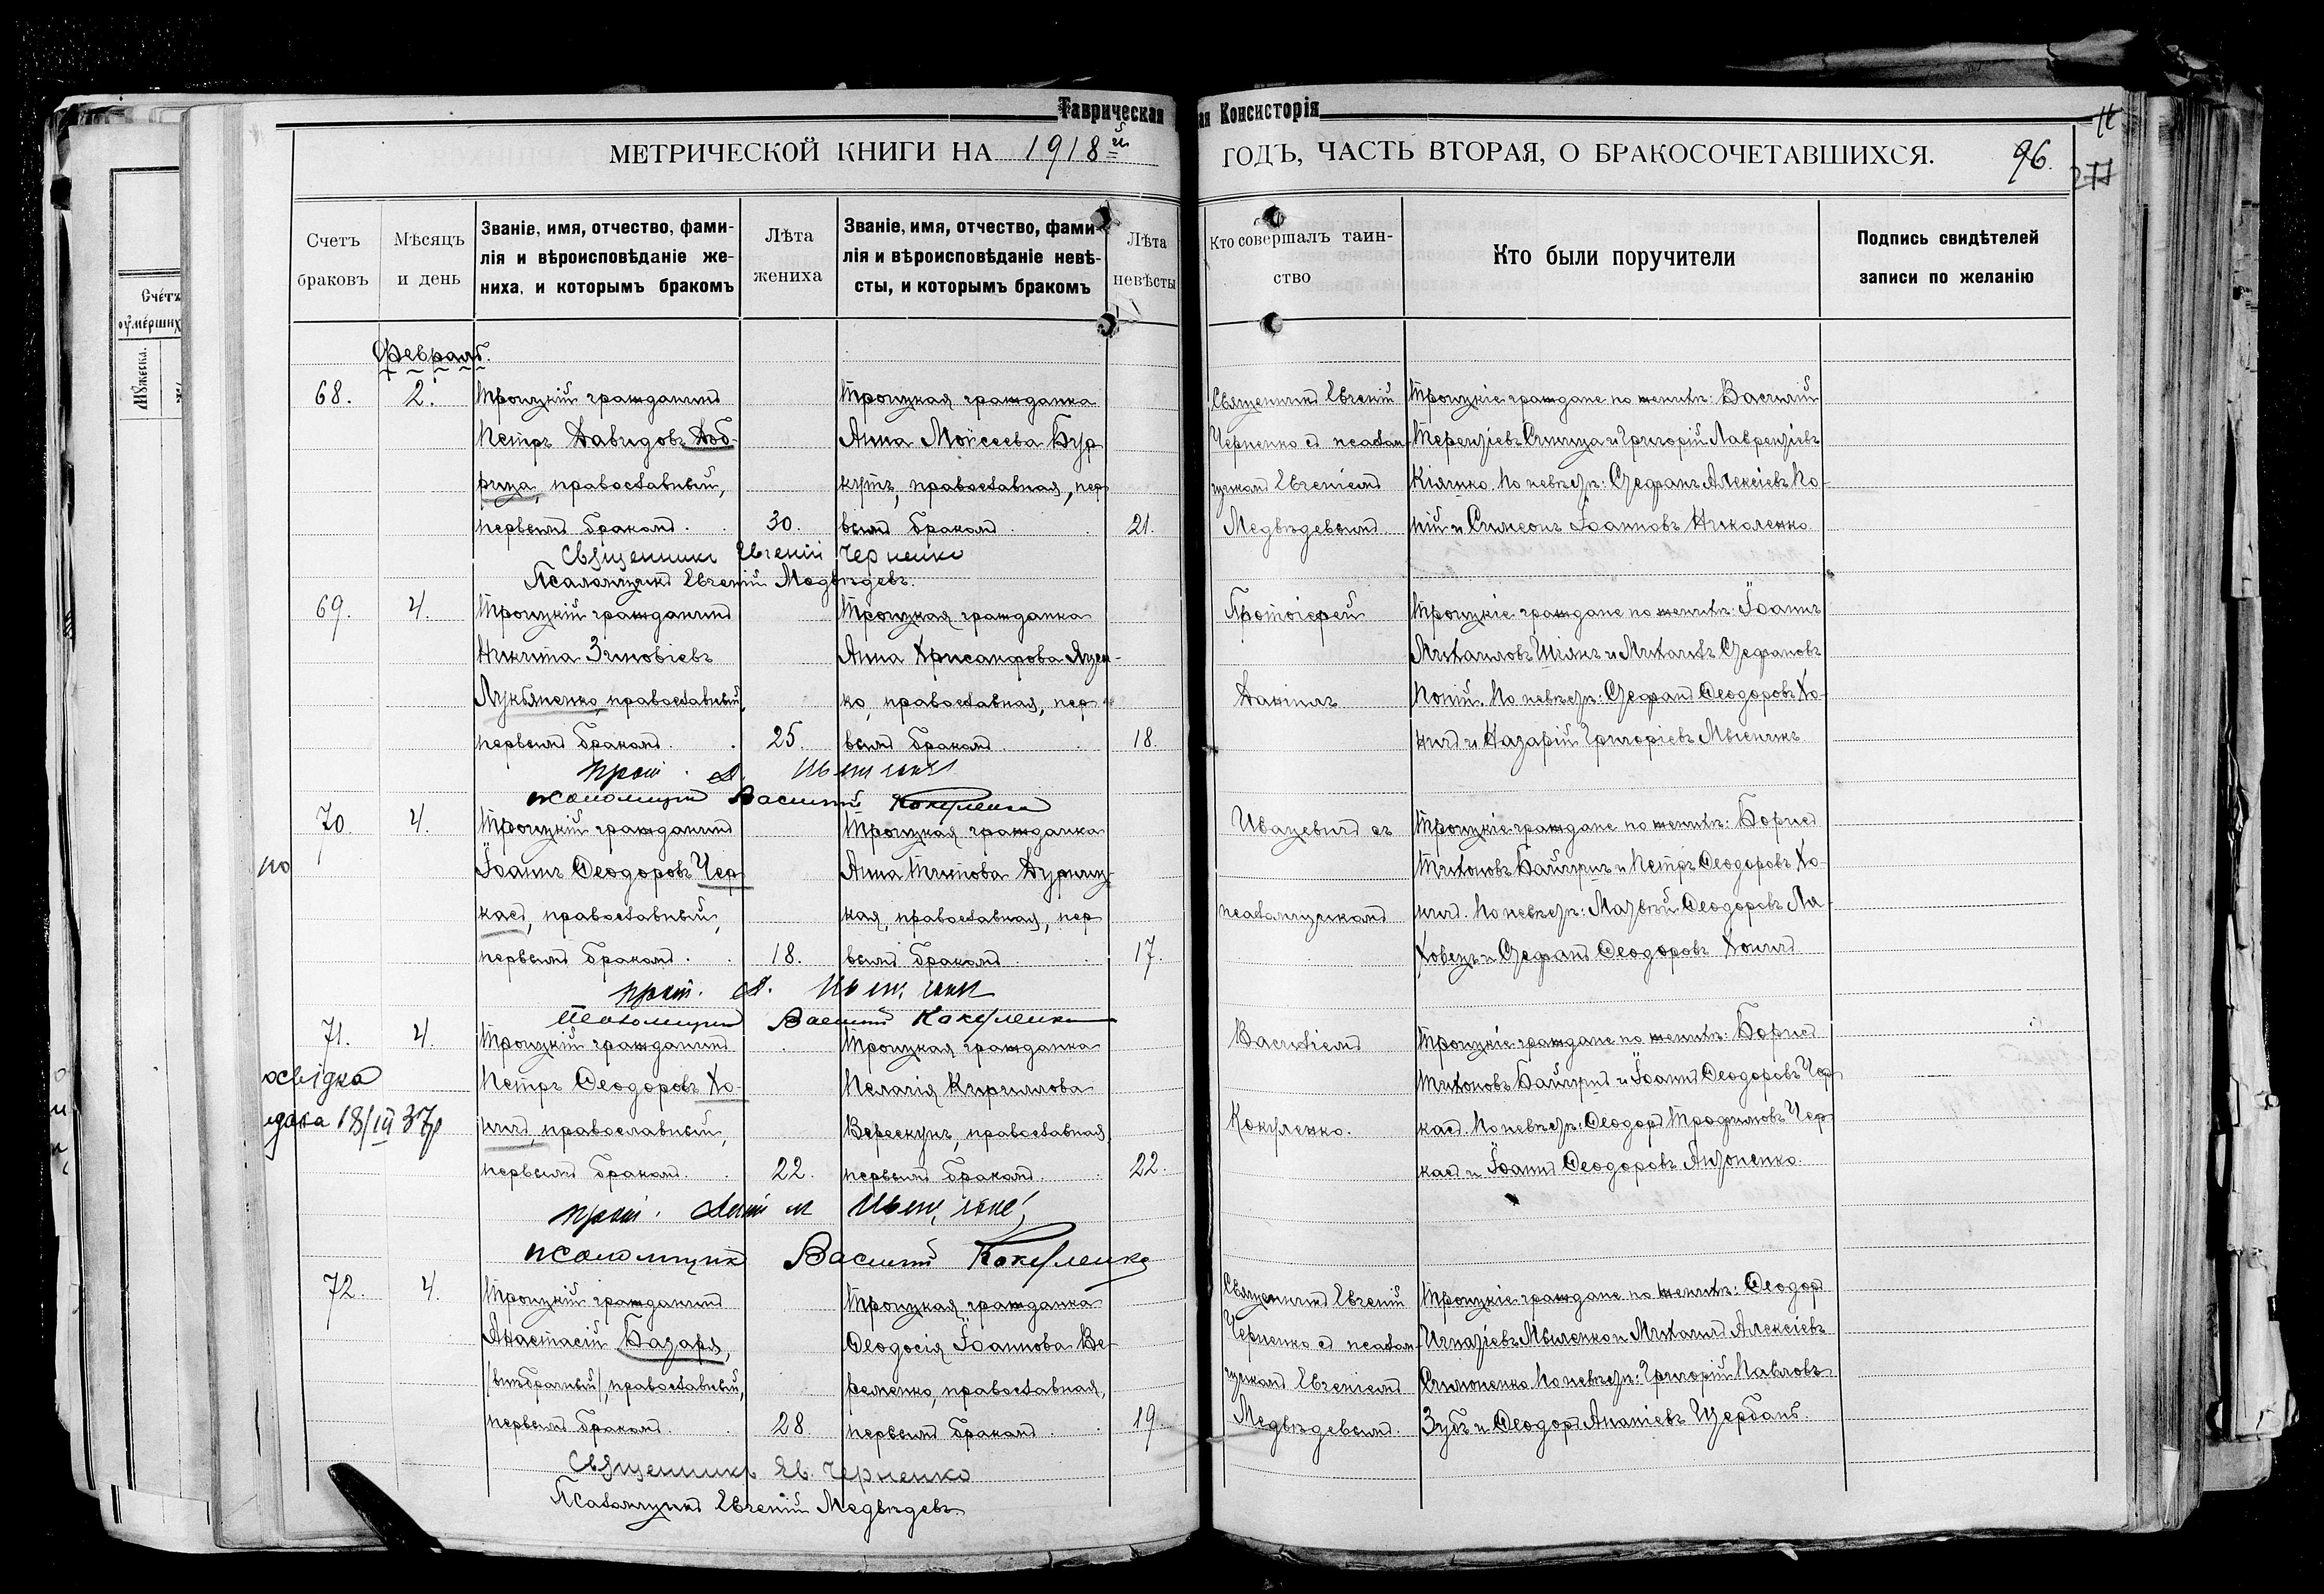 Таврическая
ая Консисторія
МЕТРИЧЕСКОЙ КНИГИ НА 1918й
ГОДЪ, ЧАСТЬ ВТОРАЯ, О БРАКОСОЧЕТАВШИХСЯ.
96.
277
Счетъ браковъ
Мѣсяцъ и день
Званіе, имя, отчество, фами-
лія и вѣроисповѣданіе же-
ниха, и которымъ бракомъ
Лѣта жениха
Званіе, имя, отчество, фами-
лія и вѣроисповѣданіе невѣ-
сты, и которымъ бракомъ
Лѣта невѣсты
Кто совершалъ таин-
ство
Кто были поручители
Подпись свидѣтелей
записи по желанію
Февраль.
68. 2.
Троицкій гражданинъ
Петръ Давидовъ Доб-
рица, православный,
первымъ бракомъ. 30.
Троицкая гражданка
Анна Моѵсеева Бур
кутъ, православная, пер
вымъ бракомъ. 21.
Священникъ Евгеній
Черненко съ псалом-
щикомъ Евгеніемъ
Медвѣдевымъ
Троицкіе граждане по женихѣ: Василій
Терентіевъ Синица и Григорій Лаврентіевъ
Кіяшко. По невѣстѣ: Стефанъ Алексіевъ Ко-
пій и Симеонъ Іоанновъ Николенко
Священникъ Евгеній Черненко
Псаломщикъ Евгеній Медвѣдевъ.
69. 4.
Троицкій гражданинъ
Никита Зиновіевъ
Лукьяненко, православный,
первымъ бракомъ. 25.
Троицкая гражданка
Анна Хрисанфова Яцен-
ко, православная, пер
вымъ бракомъ. 18.
Протоіерей
Даніилъ
Троицкіе граждане по женихѣ: Іоаннъ
Михаиловъ Шіянъ и Михаилъ Стефановъ
Копій. По невѣстѣ: Стефанъ Ѳеодоровъ Хо-
ничъ и Назарій Григоріевъ
прот. Д. Ивацевич
псаломщик Василий Кокуленко
70. 4.
Троицкій гражданинъ
Іоаннъ Ѳеодоровъ Чер
касъ, православный,
первымъ бракомъ. 18.
Троицкая гражданка
Анна Титова Дуриц-
кая, православная, пер
вымъ бракомъ. 17.
Ивацевичъ съ
псаломщикомъ
Троицкіе граждане по женихѣ: Борисъ
Тихоновъ Байчуринъ и Петръ Ѳеодоровъ Хо-
ничъ. По невѣстѣ: Матѳѣй Ѳеодоровъ Ля-
ховецъ и Стефанъ Ѳеодоровъ Хоничъ
прот. Д. Ивацевич
Псаломщик Василий Кокуленко
71. 4.
освідка
дана 18/III 37р
Троицкій гражданинъ
Петръ Ѳеодоровъ Хо-
ничъ, православный,
первымъ бракомъ. 22.
Троицкая гражданка
Пелагія Кириллова
Верескунъ, православная,
первымъ бракомъ. 22.
Василіемъ
Кокуленко.
Троицкіе граждане по женихѣ: Борисъ
Тихоновъ Байчуринъ и Іоаннъ Ѳеодоровъ Чер
касъ. По невѣстѣ: Ѳеодоръ Трофимовъ Чер
касъ и Іоаннъ Ѳеодоровъ Антоненко.
прот. Данiил Ивацевич
псаломщик Василий Кокуленко
72. 4.
Троицкій гражданинъ
Анастасій Базаря,
/внѣбрачный/, православный,
первымъ бракомъ. 28
Троицкая гражданка
Ѳеодосія Іоаннова Ве-
ременко, православная,
первымъ бракомъ. 19.
Священникъ Евгеній
Черненко съ псалом-
щикомъ Евгеніемъ
Медвѣдевымъ.
Троицкіе граждане по женихѣ: Ѳеодоръ
Игнатіевъ и Михаилъ Алексіевъ
Симоненко. По невѣстѣ: Григорій Павловъ
Зубъ и Ѳеодоръ Ананіевъ Щербань.
Священникъ Ев. Черненко
Псаломщикъ Евгеній Медвѣдевъ.